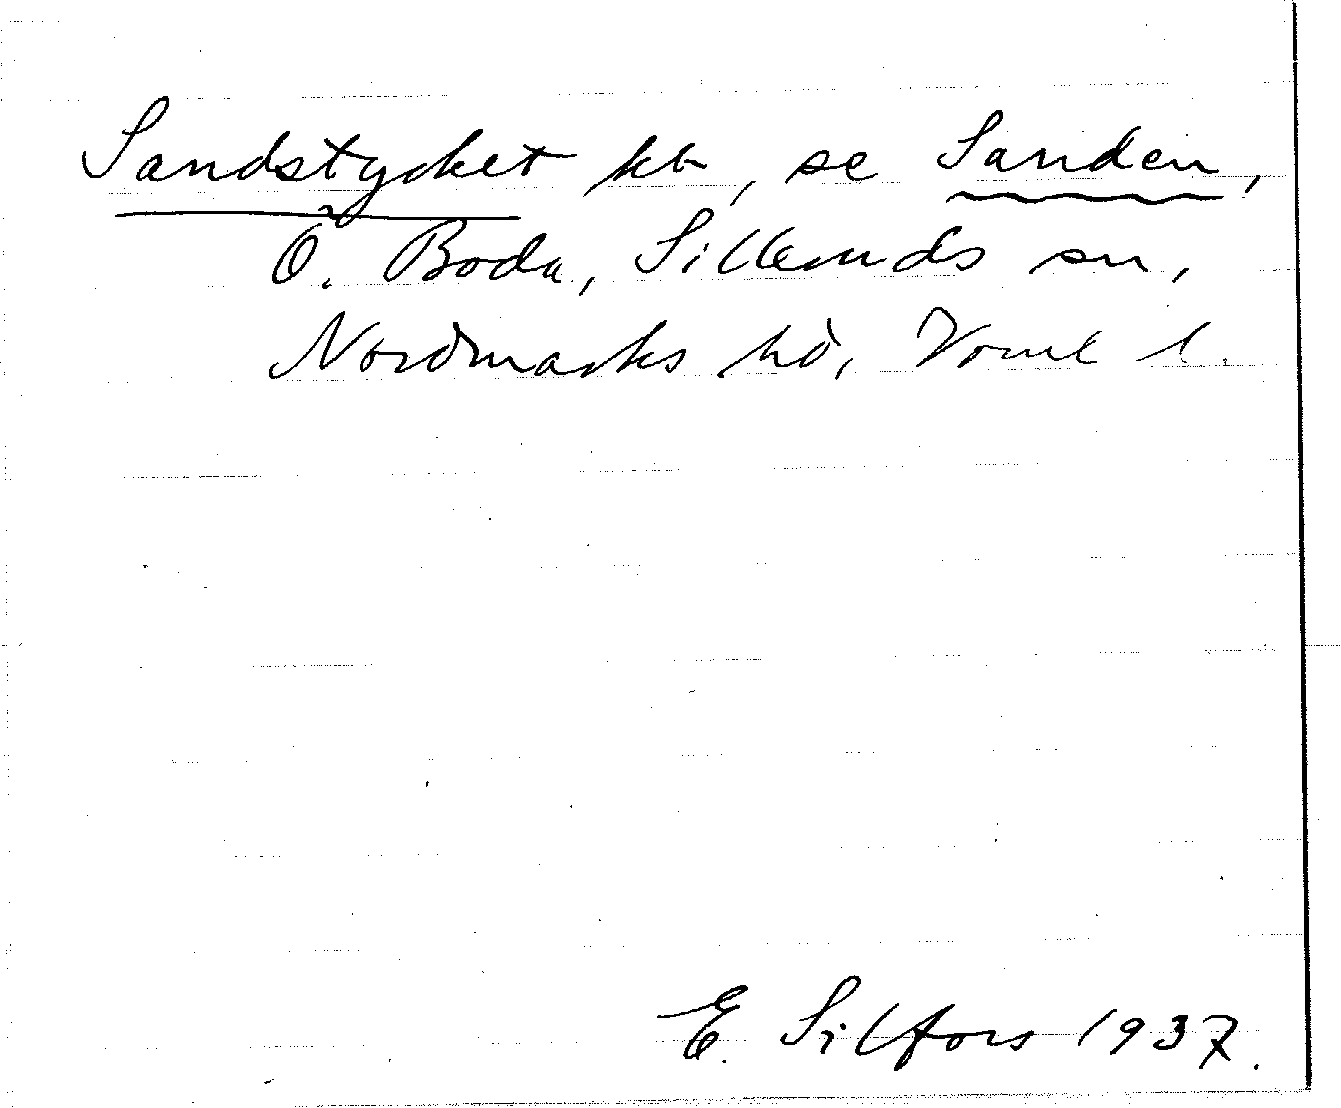 Sandstycket kb, se Sanden,
Ö. Boda, Silleruds sn,
Nordmarks hd, Värml l.
E. Silfors 1937.